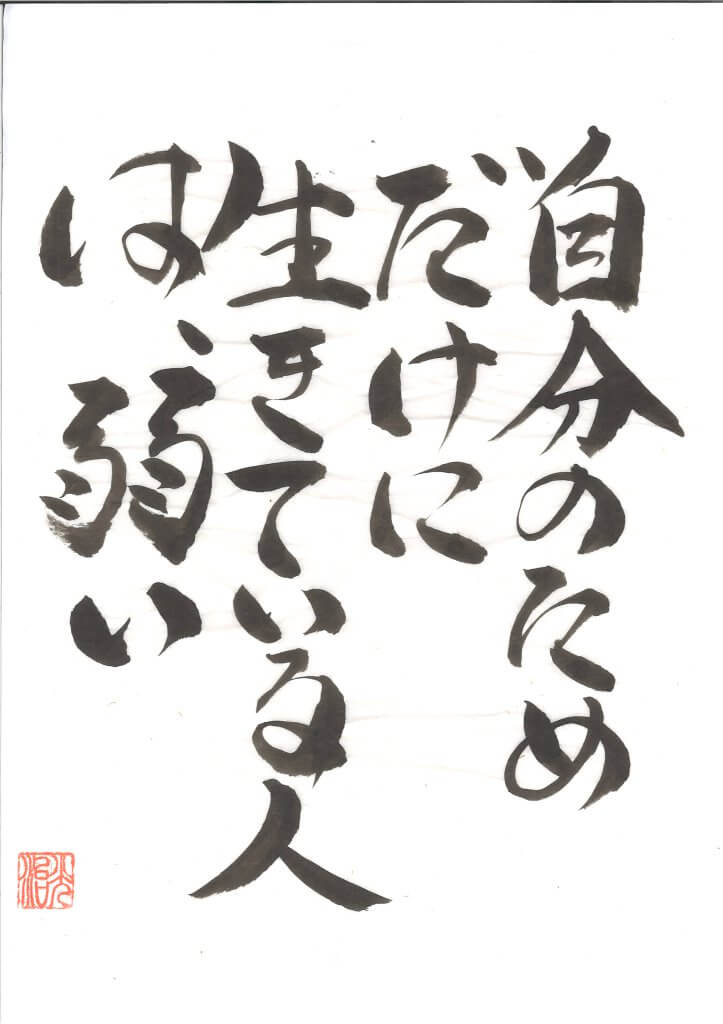 自分のため
だけに
生きている人
は、弱い